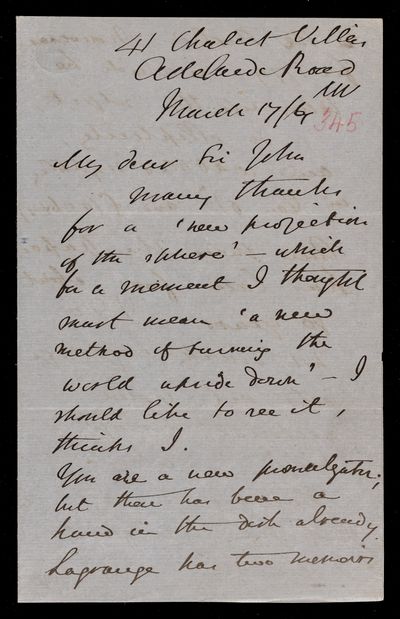 41 Chalcot Villas
Adelaide Road
NW
March 17/61
345
My dear Sir John
Many thanks
for a 'new projection
of the sphere' – which
for a moment I thought
must mean 'a new
method of turning the
world upside down' – I
should like to see it,
thinks I.
You are a new promulgator;
but there has been a
hand in the dish already.
Lagrange has two memoirs